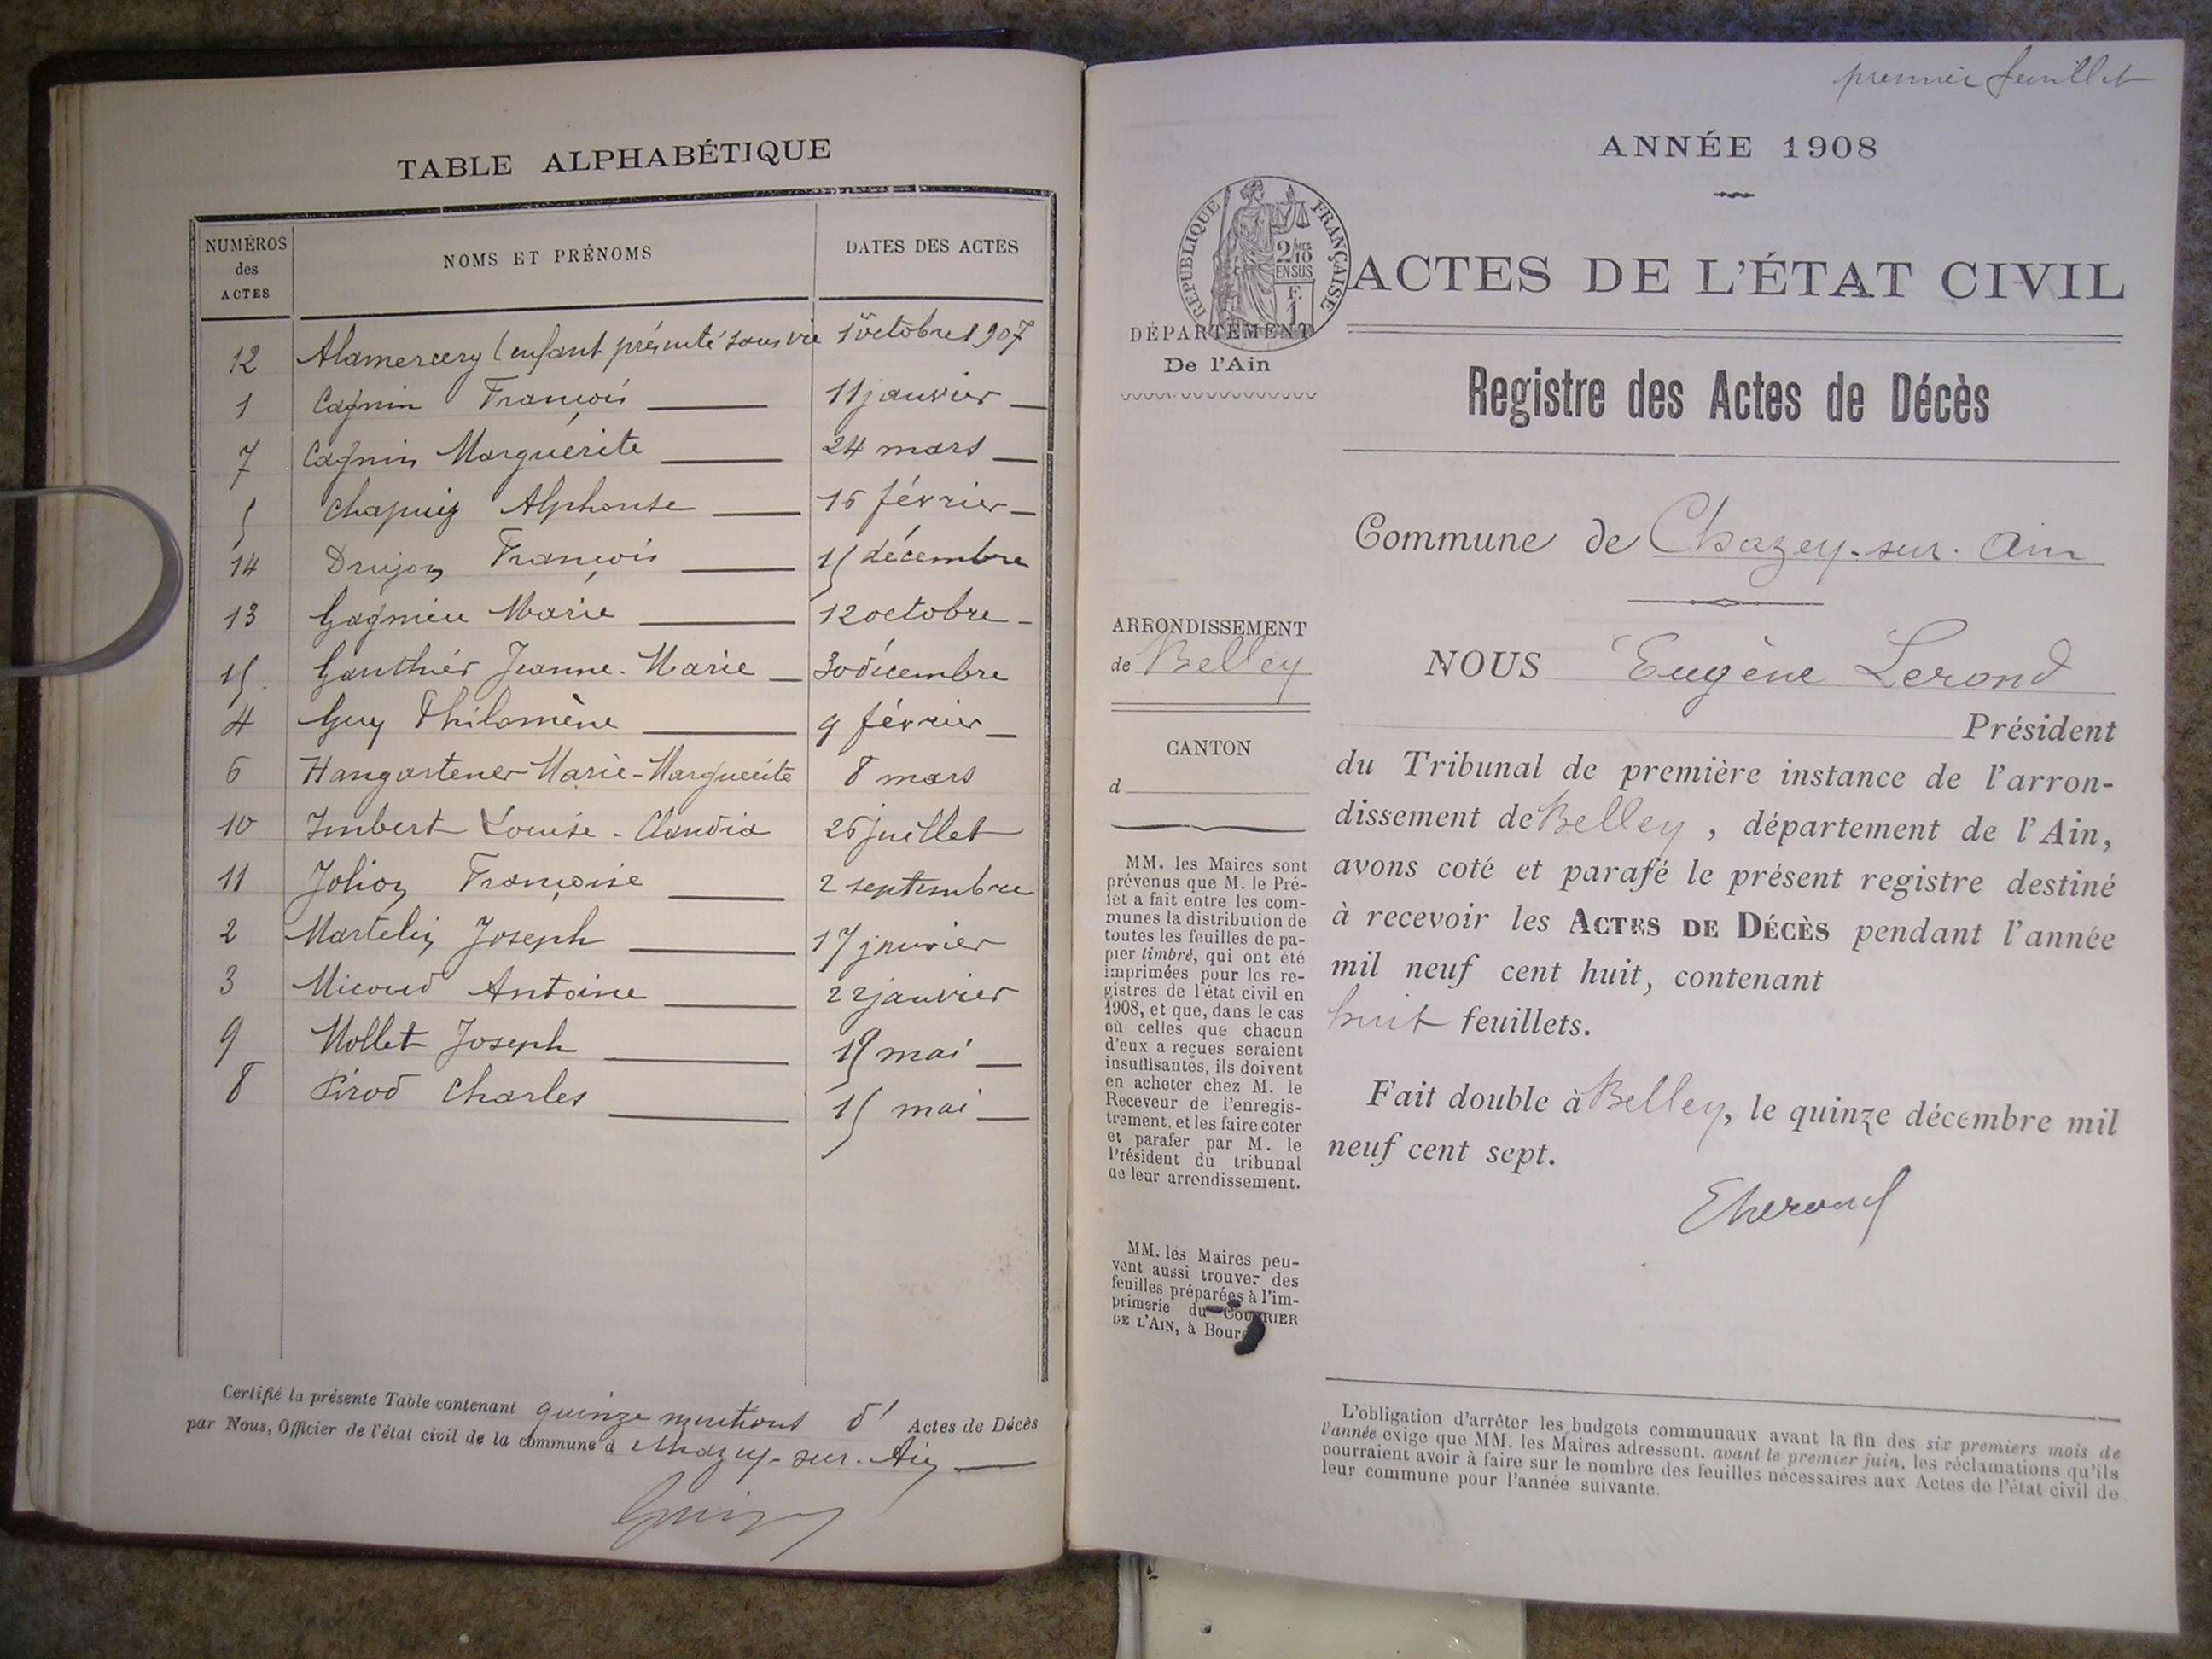 TABLE ALPHABÉTIQUE
NUMÉROS des ACTES NOMS ET PRÉNOMS DATES DES ACTES
12 Alamercery (enfant présenté sans vie 1er octobre 1907
1 Cagnin François 11 janvier
7 Cagnin Marguerite 24 mars
5 Chapuis Alphonse 16 février
14 Drujon François 15 décembre
13 Gagnieu Marie 12 octobre
15 Gauthier Jeanne-Marie 30 décembre
4 Guy Philomène 9 février
6 Hangartener Marie-Marguerite 8 mars
10 Imbert Louise-Claudia 26 juillet
11 Jolion Françoise 2 septembre
2 Martelin Joseph 17 janvier
3 Micoud Antoine 22 janvier
9 Mollet Joseph 19 mai
8 Pirod Charles 15 mai
Certifié la présente Table contenant quinze mentions d' Actes de Décès
par Nous, Officier de l'état civil de la commune d Chazey-sur-Ain
premier feuillet
ANNÉE 1908
RÉPUBLIQUE FRANÇAISE
2/10 EN SUS
F. 1
ACTES DE L'ÉTAT CIVIL
DÉPARTEMENT
De l'Ain
Registre des Actes de Décès
Commune de Chazey-sur-Ain
ARRONDISSEMENT
de Belley
CANTON
d
MM. les Maires sont
prévenus que M. le Pré-
fet a fait entre les com-
munes la distribution de
toutes les feuilles de pa-
pier timbré, qui ont été
imprimées pour les re-
gistres de l'état civil en
1908, et que, dans le cas
où celles que chacun
d'eux a reçues seraient
insuffisantes, ils doivent
en acheter chez M. le
Receveur de l'enregis-
trement, et les faire coter
et parafer par M. le
Président du tribunal
de leur arrondissement.
MM. les Maires peu-
vent aussi trouver des
feuilles préparées à l'im-
primerie du COURRIER
DE L'AIN, à Bourg
NOUS Eugène Lerond
Président
du Tribunal de première instance de l'arron-
dissement de Belley, département de l'Ain,
avons coté et parafé le présent registre destiné
à recevoir les ACTES DE DÉCÈS pendant l'année
mil neuf cent huit, contenant
huit feuillets.
Fait double à Belley, le quinze décembre mil
neuf cent sept.
ELerond
L'obligation d'arrêter les budgets communaux avant la fin des six premiers mois de
l'année exige que MM. les Maires adressent, avant le premier juin, les réclamations qu'ils
pourraient avoir à faire sur le nombre des feuilles nécessaires aux Actes de l'état civil de
leur commune pour l'année suivante.